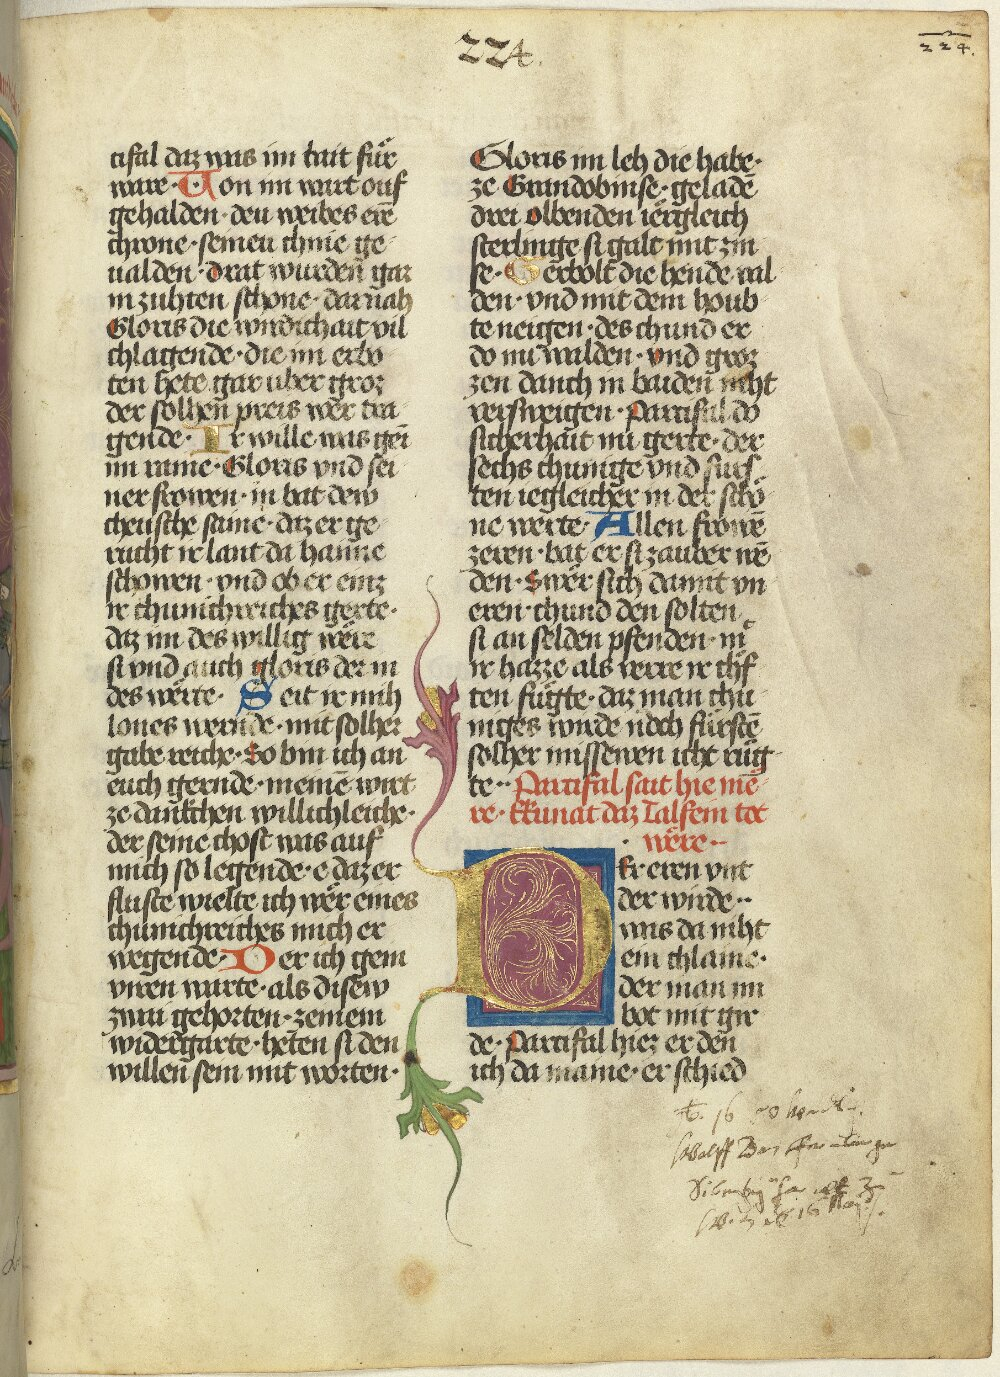 224.
224.
tifal daz was im tait für
ware· Von im wart ouf
gehalden· den weibes ere
chrone· seineu chnie ge
ualden· drat wurden gar
in zuhten schone· dar nah
Gloris die wirdichait vil
chlagende· die im erbo
ten hete gar uber groz
der solhen preis wer tra
gende· Ir wille was gen
im rame· Gloris vnd sei
ner frowen· in bat dew
cheusche saine· daz er ge
rucht ir lant da hanne
schowen· vnd ob er einz
ir chunichreiches gerte·
daz im des willig wëre
si vnd auch gloris der in
des wërte· Seit ir mih
lones wernde· mit solher
gabe reiche· So bin ich an
euch gernde· meinē wirt
ze danchen willichleiche·
der seine chost was auf
mich so legende· e daz er
fluste wielte ich wër eines
chunichreiches mich er
wegende· Der ich gem
viren warte· als disew
zwai gehorten· zeinem
widergarte· heten si den
willen sein mit worten·
Gloris im leh die habe·
ze Grandobinse· geladē
drei olbenden iërgleich
sterlinge si galt mit zin
se· Gerbolt die hende val
den· vnd mit dem houb
te neigen· des chund er
do niu walden· vnd groz
zen danch in baiden niht
versweigen· Partifal do
sicherhait im gerte· der
sechs chunige vnd fürs
ten iegleicher in der schö
ne werte· Allen frowē
zeren· bat er si zauber mē
den· Swër sich damit vn
eren· chund den solten
si an selden pfenden· in
ir hazze als verre ir chf
ten fügte· daz man chu
niges wirde noch fürstē
solher missewen icht rüg
te·· Partifal sait hie mē
re· Ekunat daz Talfein tot
wëre··
Der eren vnt
der wirde··
was da niht
ein chlaine·
der man im
bot mit gir
de· Partifal hiez er den
ich da maine· er schied